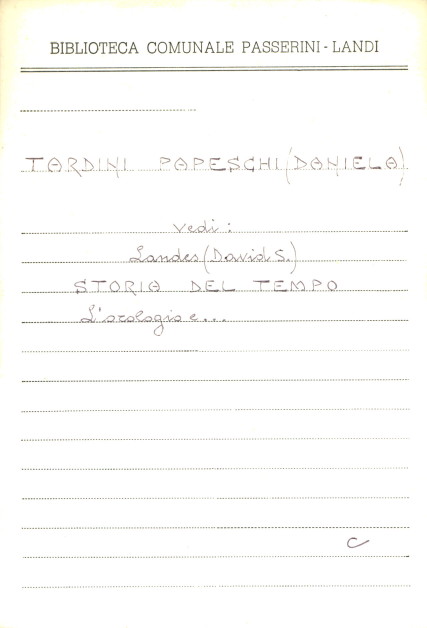 BIBLIOTECA COMUNALE PASSERINI - LANDI
TARDINI PAPESCHI (DANIELA)
vedi:
Landes (David S.)
STORIA DEL TEMPO
L'orologio e...
C